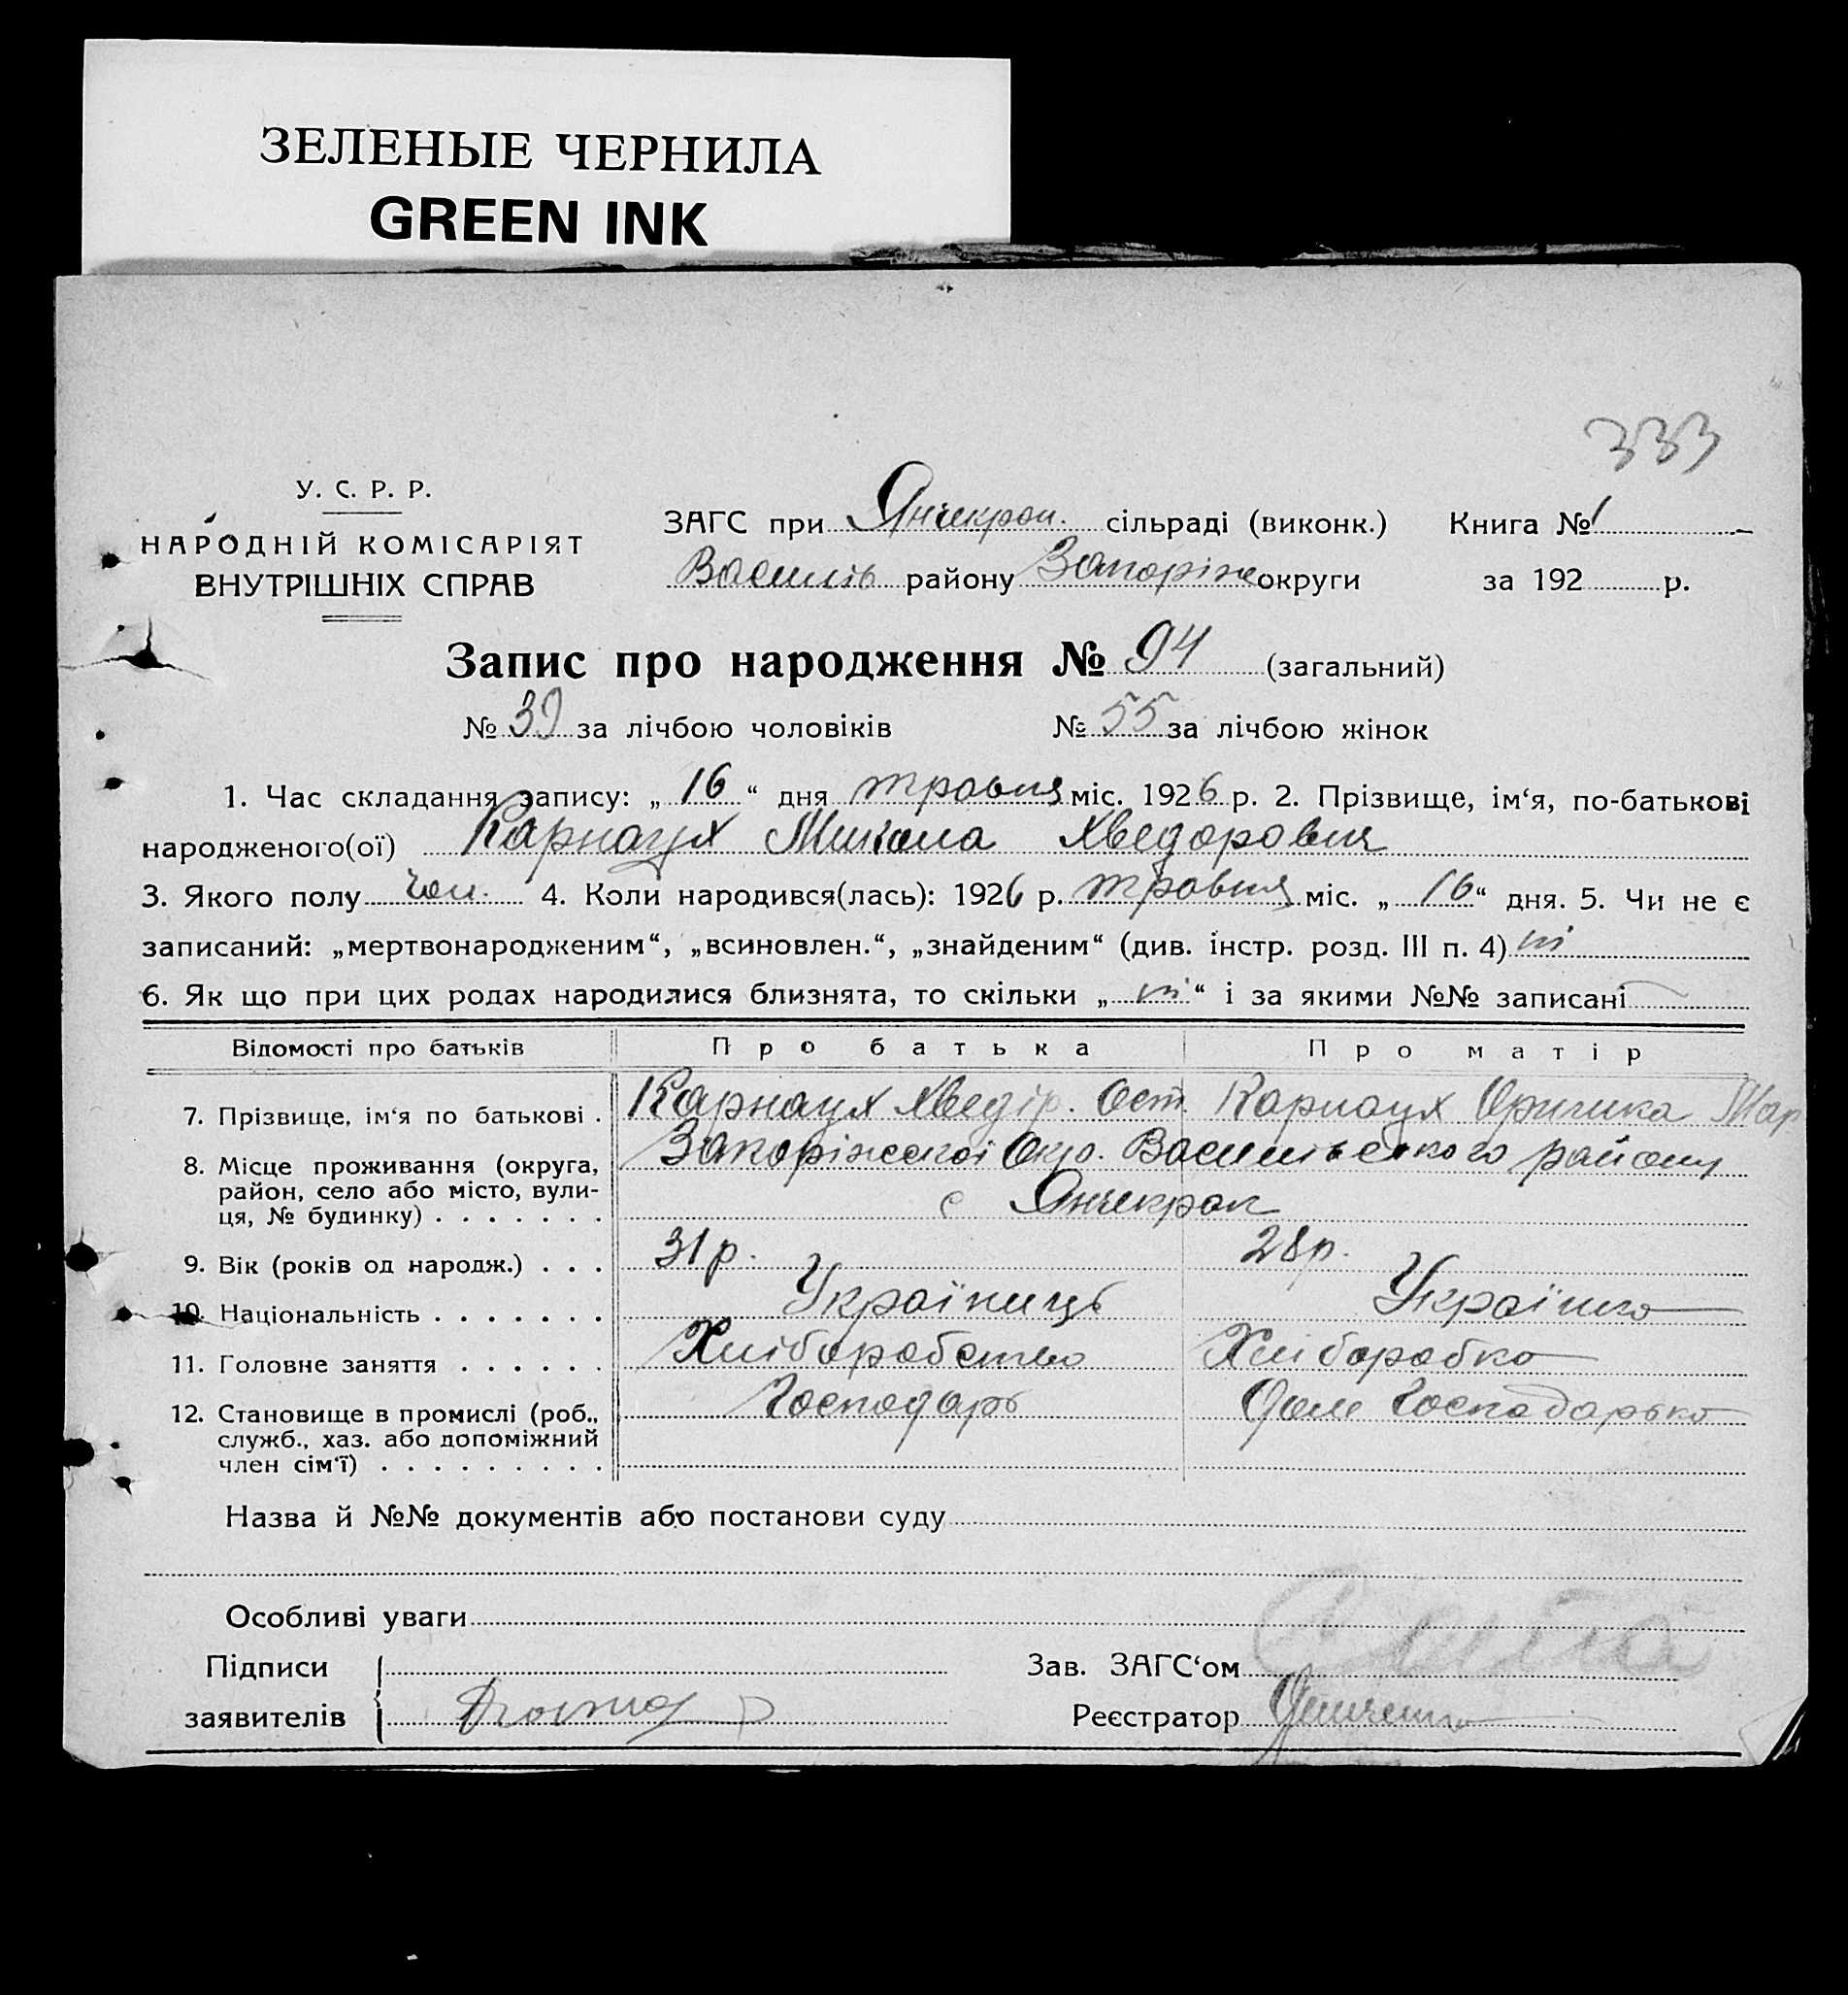 ЗЕЛЕНЫЕ ЧЕРНИЛА
GREEN INK
333
У. С. Р. Р.
НАРОДНІЙ КОМІСАРІЯТ
ВНУТРІШНІХ СПРАВ
ЗАГС при Янчекрак. сільраді (виконк.) Книга № 1
Василів району Запоріж округи за 192 р.
Запис про народження № 94 (загальний)
№ 39 за лічбою чоловіків № 55 за лічбою жінок
1. Час складання запису: „ 16 “ дня травня міс. 1926 р. 2. Прізвище, ім‘я, по-батькові
народженого(ої) Карнаух Микола Хведорович
3. Якого полу чол. 4. Коли народився(лась): 1926 р. травня міс. „ 16 “ дня. 5. Чи не є
записаний: „мертвонародженим“, „всиновлен.“, „знайденим“ (див. інстр. розд. III п. 4) ні
6. Як що при цих родах народилися близнята, то скільки „ ні “ і за якими №№ записані
Відомості про батьків Про батька Про матір
7. Прізвище, ім‘я по батькові . Карнаух Хведір. Ост. Карнаух Оришка Мар
8. Місце проживання (округа, Запоріжської Окр. Васильевського району
район, село або місто, вули-
ця, № будинку) . . . . . . . с Янчекрак
9. Вік (років од народж.) . . . 31 р. 28 р.
10. Національність . . . . . . . Українець Українка
11. Головне заняття . . . . . . Хліборобство Хліборобка
12. Становище в промислі (роб., Господарь Дом Господарька
служб., хаз. або допоміжний
член сім‘ї) . . . . . . . . .
Назва й №№ документів або постанови суду
Особливі уваги
Підписи Зав. ЗАГС‘ом
заявителів Реєстратор